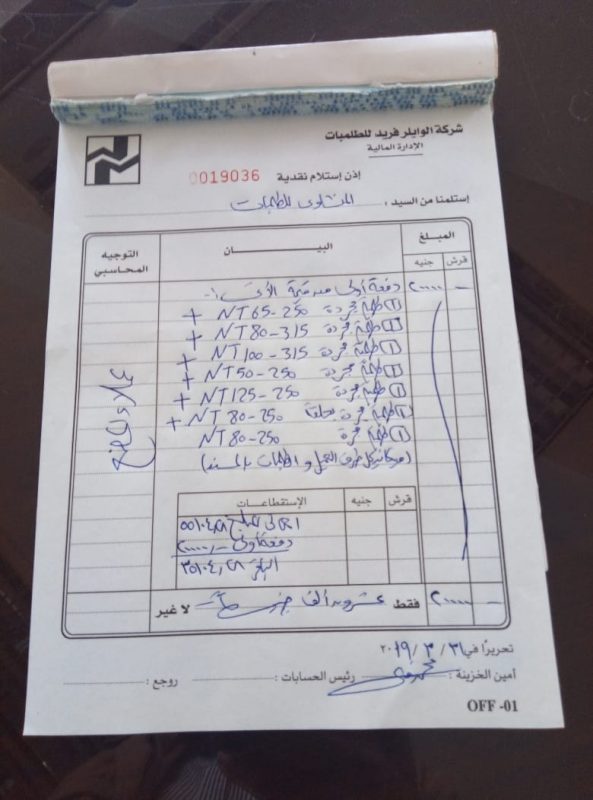 شركة الوايلر فريد للطلمبات
الإدارة المالية
إذن إستلام نقدية 0019036
إستلمنا من السيد : للطلمبات
المبلغ
البيـــــان
التوجيه المحاسبي
قرش
جنيه
- ٢٠٠٠٠ دفعة أولى من قيمة الآتى :-
(١) طلمبة مجردة NT 65-250 +
(١) طلمبة مجردة NT 80-315 +
(١) طلمبة مجردة NT 100-315 +
(١) طلمبة مجردة NT 50-250 +
(١) طلمبة مجردة NT 125-250 +
(١) طلمبة مجردة NT 80-250 +
(١) طلمبة مجردة NT 80-250
طرف العميل و الطلمبات
قرش
جنيه
الإستقطاعـــات
دفعة أولى ٢٠٠٠٠,-
- ٢٠٠٠٠ فقط عشرون ألف جنيه لا غير
تحريرًا في ٣١ / ٣ / ٢٠١٩
أمين الخزينة :
رئيس الحسابات :
روجع :
OFF -01